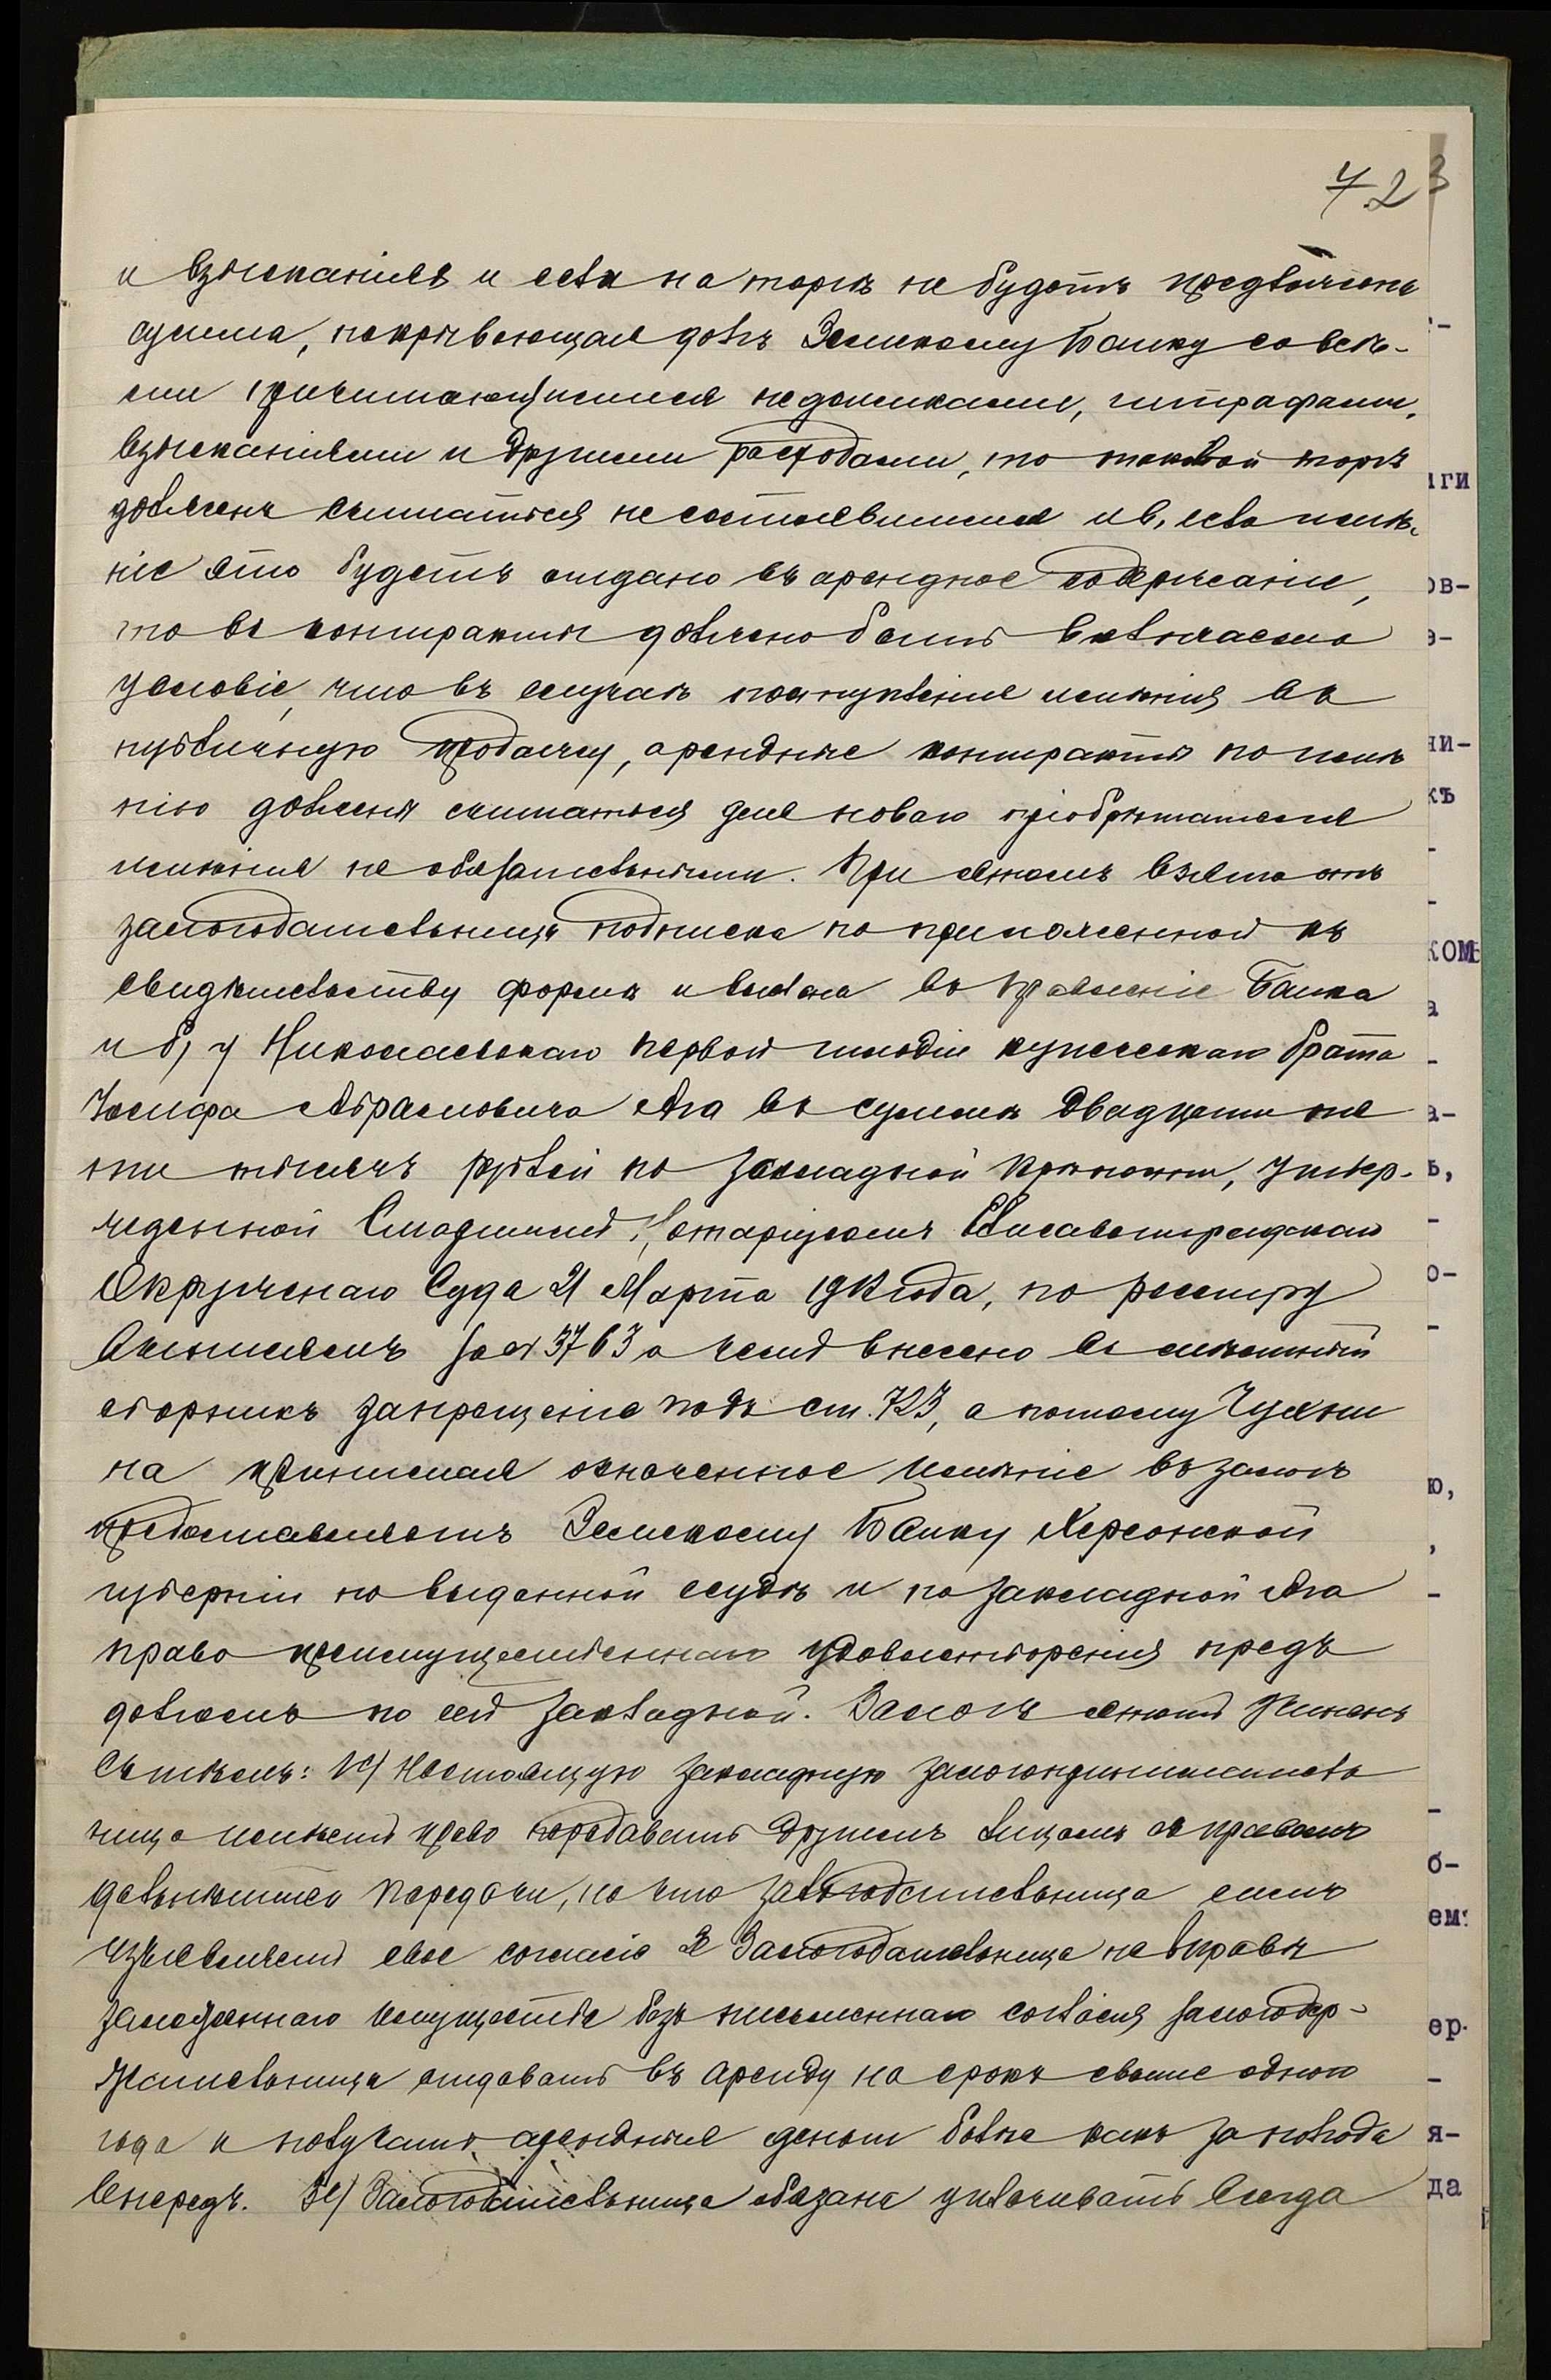 72
3
и взысканіями и если на торгѣ не будетъ предложена
сумма, покрывающая долгъ Земскому Банку со всѣ-
ми причитающимися недоимками, штрафами,
взысканіями и другими расходами, то таковой торгъ
долженъ считаться несостоявшимся и в, если имѣ-
ніе это будетъ отдано въ арендное содержаніе,
то въ контрактѣ должно быть включаемо
условіе, что въ случаѣ поступленія имѣнія въ
публичную продажу, арендные контракты по имѣ
нію должны считаться для новаго пріобрѣтателя
имѣнія не обязательными. При этомъ взята отъ
залогодательницы подписка по приложенной къ
свидѣтельству формѣ и выслана въ Правленіе Банка
и б, у Николаевскаго первой гильдіи купеческаго брата
Іосифа Абрамовича Ага въ суммѣ двадцати пя
ти тысячъ рублей по закладной крѣпости, утвер-
жденной Старшимъ Нотаріусомъ Елисаветградскаго
Окружнаго Суда 21 Марта 1912 года, по реестру
за № 3763 о чемъ внесено въ
сборникъ запрещеніе подъ ст. 723, а потому
на принимая означенное имѣніе въ залогъ
предоставляетъ Земскому Банку Херсонской
губерніи по выданной ссудѣ и по закладной Ага
право преимущественнаго удовлетворенія предъ
долгомъ по сей закладной. Залогъ этотъ
съ тѣмъ: 1е) Настоящую закладную
ница имѣетъ право передавать другимъ лицамъ съ правомъ
дальнѣйшей передачи, на что залогодательница симъ
изъявляетъ свое согласіе 2е Залогодательница не вправѣ
заложеннаго имущества безъ письменнаго согласія залогодер-
жательницы отдавать въ аренду на срокъ свыше одного
года и получать арендныя деньги болѣе какъ за полгода
впередъ. 3е) Залогодательница обязана уплачивать всегда
-
ги
ов-
-
ни-
къ
-
-
ком
а
-
а-
ъ,
-
о-
-
ю,
,
-
-
б-
ем
ер-
-
я-
да